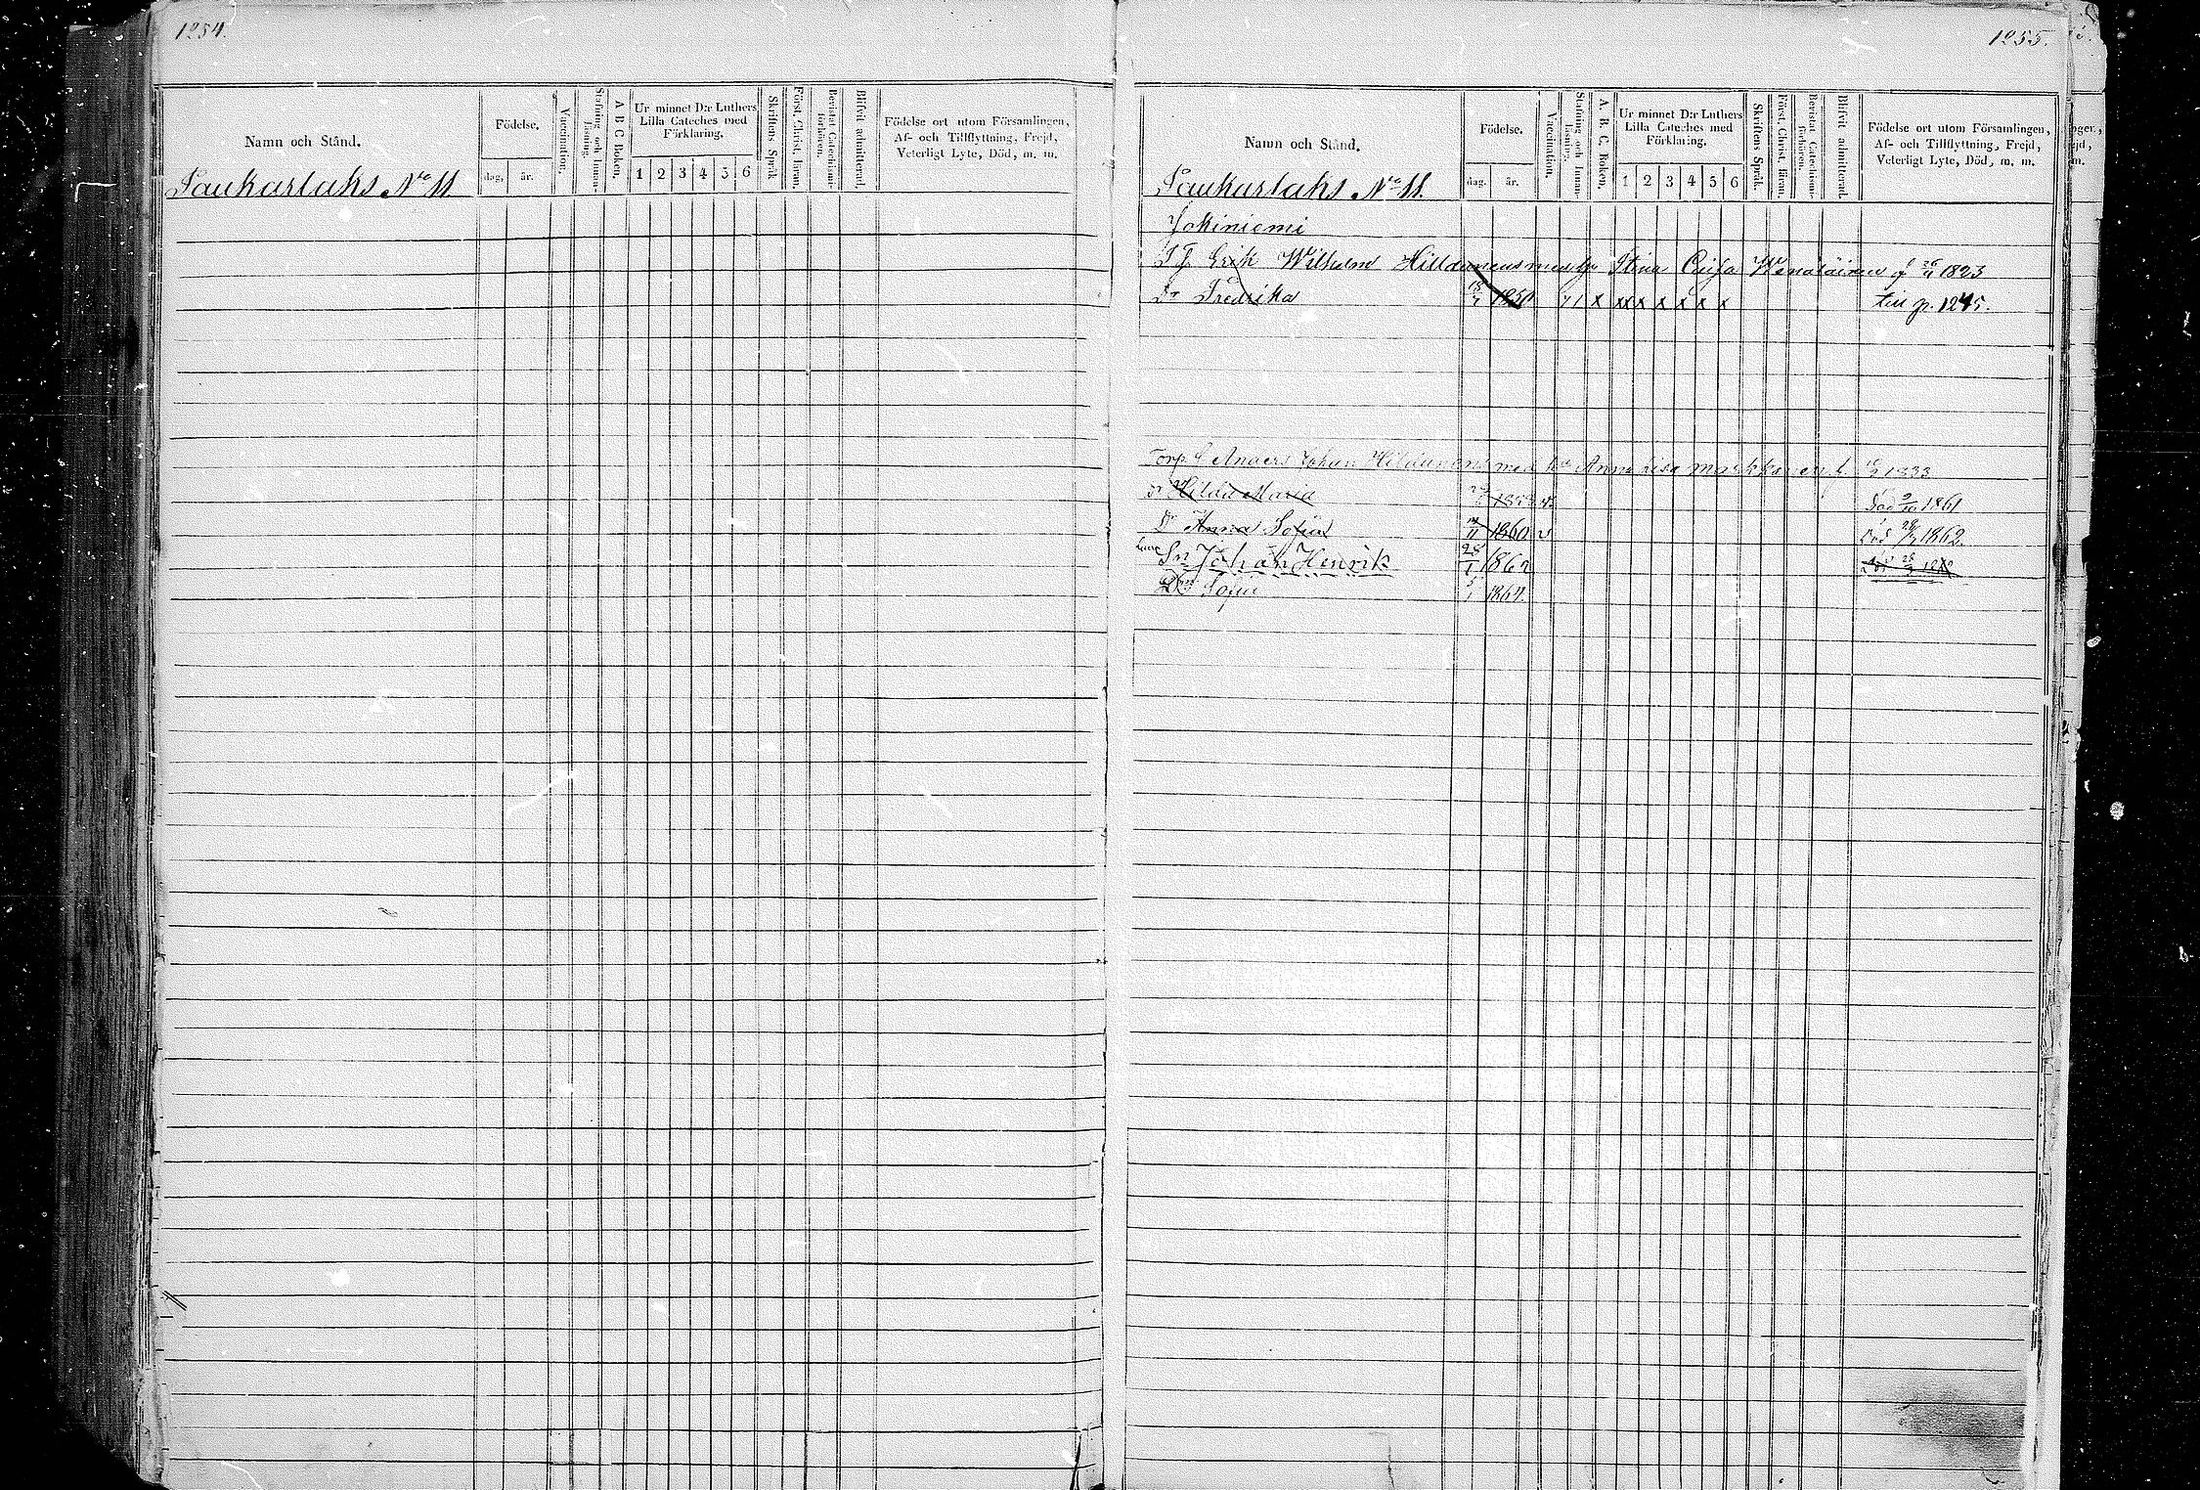 1254.
Namn och Stånd.
Födelse.
dag.
år.
Vaccination.
Stafning och Innanläsning.
A B C Boken.
Ur minnet D:r Luthers
Lilla Cateches med
Förklaring.
1 2 3 4 5 6
Skriftens Språk.
Först. Christ. läran.
Bevistat Catechismiförhören.
Blifvit admitterad.
Födelse ort utom Församlingen,
Af- och Tillflyttning, Frejd,
Veterligt Lyte, Död, m. m.
Saukarlaks No 11.
1255.
Namn och Stånd.
Födelse.
dag.
år.
Vaccination.
Stafning och Innanläsning.
A. B. C. Boken.
Ur minnet D:r Luthers
Lilla Cateches med
Förklaring.
1 2 3 4 5 6
Skriftens Språk.
Först. Christ. läran.
Bevistat Catechismiförhören.
Blifvit admitterad.
Födelse ort utom Församlingen,
Af- och Tillflyttning, Frejd,
Veterligt Lyte, Död, m. m.
Saukarlaks No 11.
Jokiniemi
Erik Wilhelm Hilldunens med h. Stina Caisa Wenäläinen f 1823
Dr Fredrika 1850 x x x x x x x till p. 1245.
Torp. Anders Johan Hildunens med h. Anna Lisa Markkanen f. 1833
Dr Hilda Maria Död 1861
Dr Anna Sofia 11 1860 v Död 1862.
Sn Johan Henrik 28/1 1862
Sofia 5/1 1864.